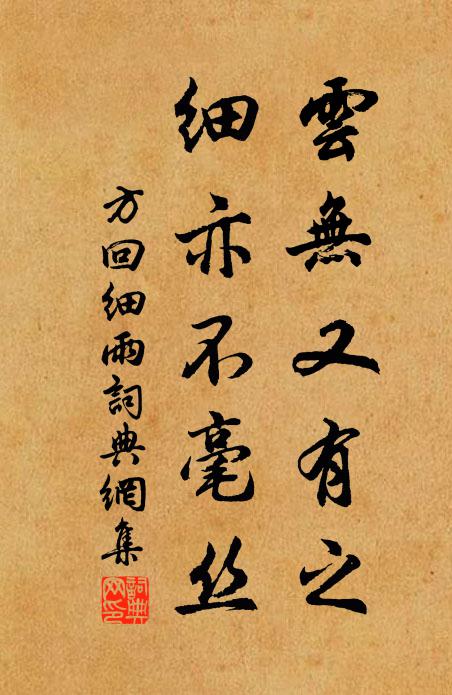 雲無又有之
细亦不毫丝
方回细雨詞典網集
詞典網印